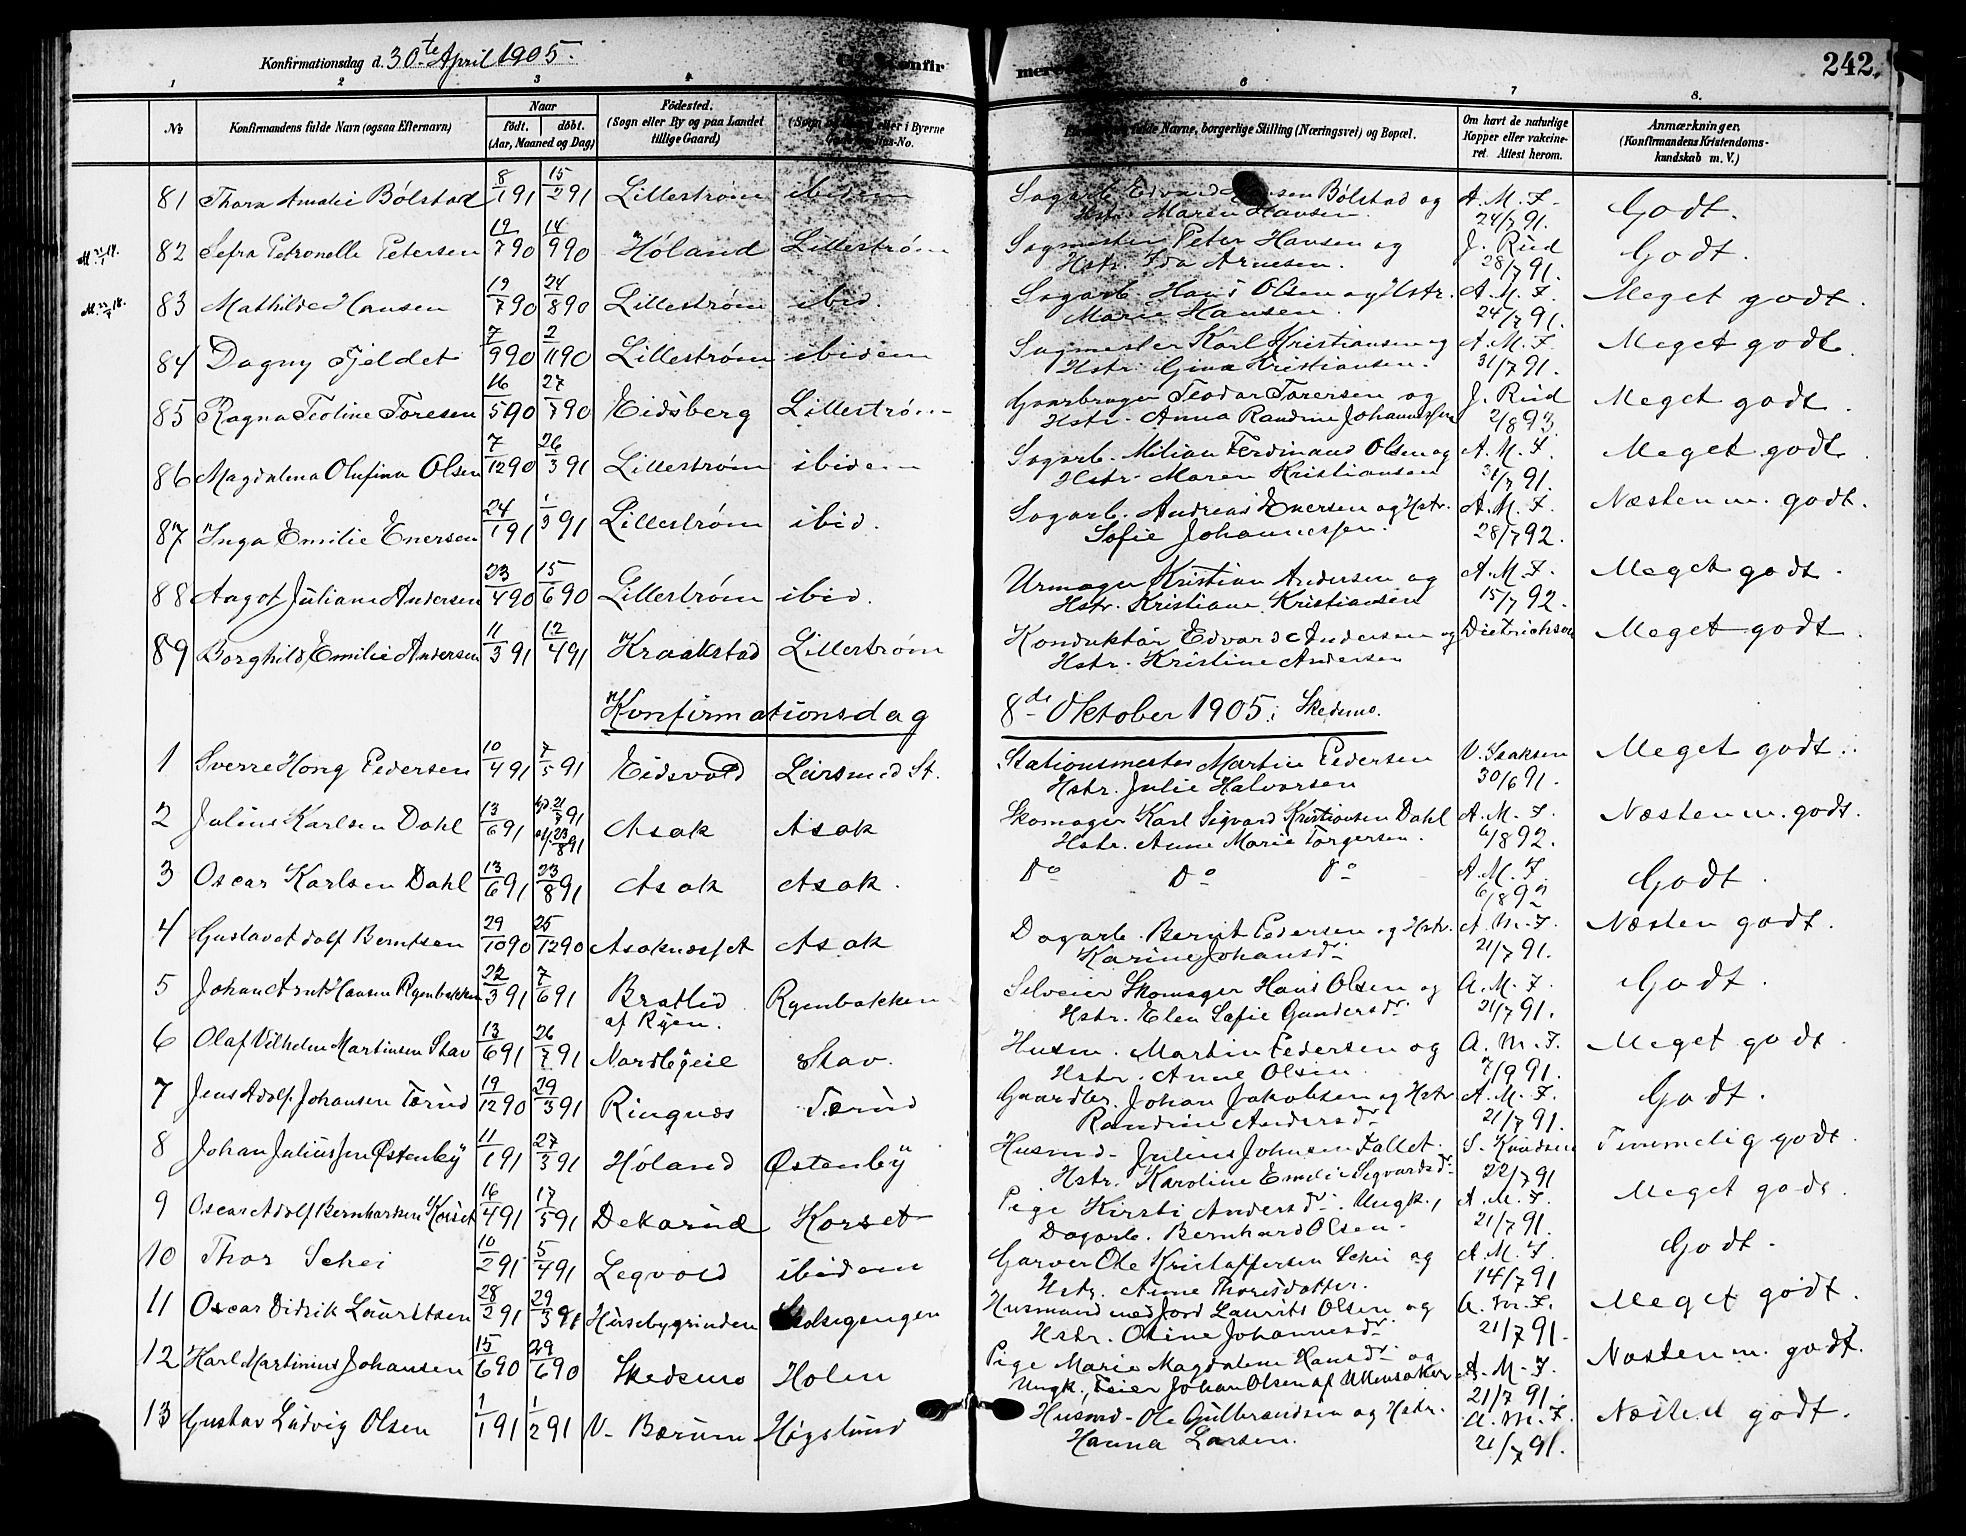 Konfirmationsdag d. 30te April 1905.
Konfir
mere
242.
1 2 3 4 6 7 8.
No
Konfirmandens fulde Navn (ogsaa Efternavn)
Naar
født. døbt.
(Aar, Maaned og Dag)
Fødested.
(Sogn eller By og paa Landet
tillige Gaard)
eller i Byerne
fulde Navne, borgerlige Stilling (Næringsvei) og Bopæl.
Om havt de naturlige
Kopper eller vakcine-
ret. Attest herom.
Anmærkninger.
(Konfirmandens Kristendoms-
kundskab m. V.)
81 Thora Amalie Bølstad 8/1 91 15/2 91 Lillestrøm ibidem Sagarb. Edvard Hansen Bølstad og A. M. F. Godt.
Hstr. Maren Hansen. 24/7 91.
82 Sefra Petronelle Petersen 19/7 90 14/9 90 Høland Lillestrøm Sagmester Peter Hansen og J. Riid Godt.
Hstr. Ida Arnesen. 28/7 91.
83 Mathilde Hansen 19/7 90 24/8 90 Lillestrøm ibid. Sagarb. Hans Olsen og Hstr. A. M. F. Meget godt.
Marie Hansen. 24/7 91.
84 Dagny Fjeldet 7/9 90 2/11 90 Lillestrøm ibidem Sagmester Karl Kristiansen og A. M. F. Meget godt.
Hstr. Gina Kristiansen. 31/7 91.
85 Ragna Teoline Toresen 16/5 90 27/7 90 Eidsberg Lillestrøm Gaarbruger Teodor Torersen og J. Riid Meget godt.
Hstr. Anna Randine Johannessen 2/8 93.
86 Magdalena Olufina Olsen 7/12 90 26/3 91 Lillestrøm ibidem Sagarb. Milian Ferdinand Olsen og A. M. F. Meget godt.
Hstr. Maren Kristiansen 31/7 91.
87 Inga Emilie Enersen 24/1 91 1/3 91 Lillestrøm ibid. Sagarb. Andreas Enersen og Hstr. A. M. F. Næsten m. godt.
Sofie Johannessen. 28/7 92.
88 Aagot Juliane Andersen 23/4 90 15/6 90 Lillestrøm ibid. Urmager Kristian Andersen og A. M. F. Meget godt.
Hstr. Kristiane Kristiansen 15/7 92.
89 Borghild Emilie Andersen 11/3 91 12/4 91 Kraakstad Lillestrøm Konduktør Edvard Andersen og Dietrichson Meget godt.
Hstr. Kristine Andersen
Konfirmationsdag 8de Oktober 1905 i Skedsmo.
1 Sverre Hong Pedersen 10/4 91 7/5 91 Eidsvold Leirsund St. Stationsmester Martin Pedersen V. Isaksen Meget godt.
Hstr. Julie Halvorsen 30/6 91.
2 Julius Karlsen Dahl 13/6 91 23/8 91 Asak Asak Skomager Karl Sigvard Kristiansen Dahl A. M. F. Næsten m. godt.
Hstr. Anne Marie Torgersen. 6/8 92.
3 Oscar Karlsen Dahl 13/6 91 23/8 91 Asak Asak. Do Do Do A. M. F. Godt.
6/8 92
4 Gustav Adolf Berntsen 29/10 90 25/12 90 Asaknesset Asak Dagarb. Bernt Pedersen og Hstr. A. M. F. Næsten godt.
Karine Johansdr. 21/7 91.
5 Johan Arnt Hansen Ryenbakken 22/3 91 7/6 91 Bratlid af Ryen. Ryenbakken Selveier Skomager Hans Olsen og A. M. F. Godt.
Hstr. Elen Sofie Gundersdr. 21/7 91.
6 Olaf Vilhelm Martinsen Stav 13/6 91 26/7 91 Nordbyeie Stav. Husm. Martin Pedersen og A. M. F. Meget godt.
Hstr. Anne Olsen. 7/9 91.
7 Jens Adolf Johansen Tærud 19/12 90 29/3 91 Ringnæs Tærud Gaardbr. Johan Jakobsen og Hstr A. M. F. Godt.
Randine Andersdr. 21/7 91.
8 Johan Julius Jen Østenby 11/1 91 27/3 91 Høland Østenby Husmd. Julius Johnsen Fallet. S. Knudsen Temmelig godt.
Hstr. Karoline Emilie Sigvardsdr. 22/7 91
9 Oscar Adolf Bernhardsen Korset 16/4 91 17/5 91 Dekorud Korset Pige Kirsti Andersdr. Ungk., A. M. F. Meget godt.
Dagarb. Bernhard Olsen. 21/7 91.
10 Thor Schei 10/2 91 5/4 91 Leqvold ibidem Garver Ole Kristoffersen Schei og A. M. F. Godt.
Hstr. Anne Thorisdatter. 14/7 91
11 Oscar Didrik Lauritsen 28/2 91 29/3 91 Husebygrinden Husmand med Jord Laurits Olsen og A. M. F. Meget godt.
Hstr. Oline Johannesdr. 21/7 91.
12 Karl Martinius Johansen 15/6 90 29/6 90 Skedsmo Holen Pige Marie Magdalene Hansdr. og A. M. F. Næsten m. godt.
Ungk., Feier Johan Olsen af Ullensaker 21/7 91.
13 Gustav Ludvig Olsen 1/1 91 1/2 91 V. Bærum Høgslund Husmd. Ole Gulbrandsen og Hstr. A. M. F. Næsten godt.
Hanna Larsen. 21/7 91.